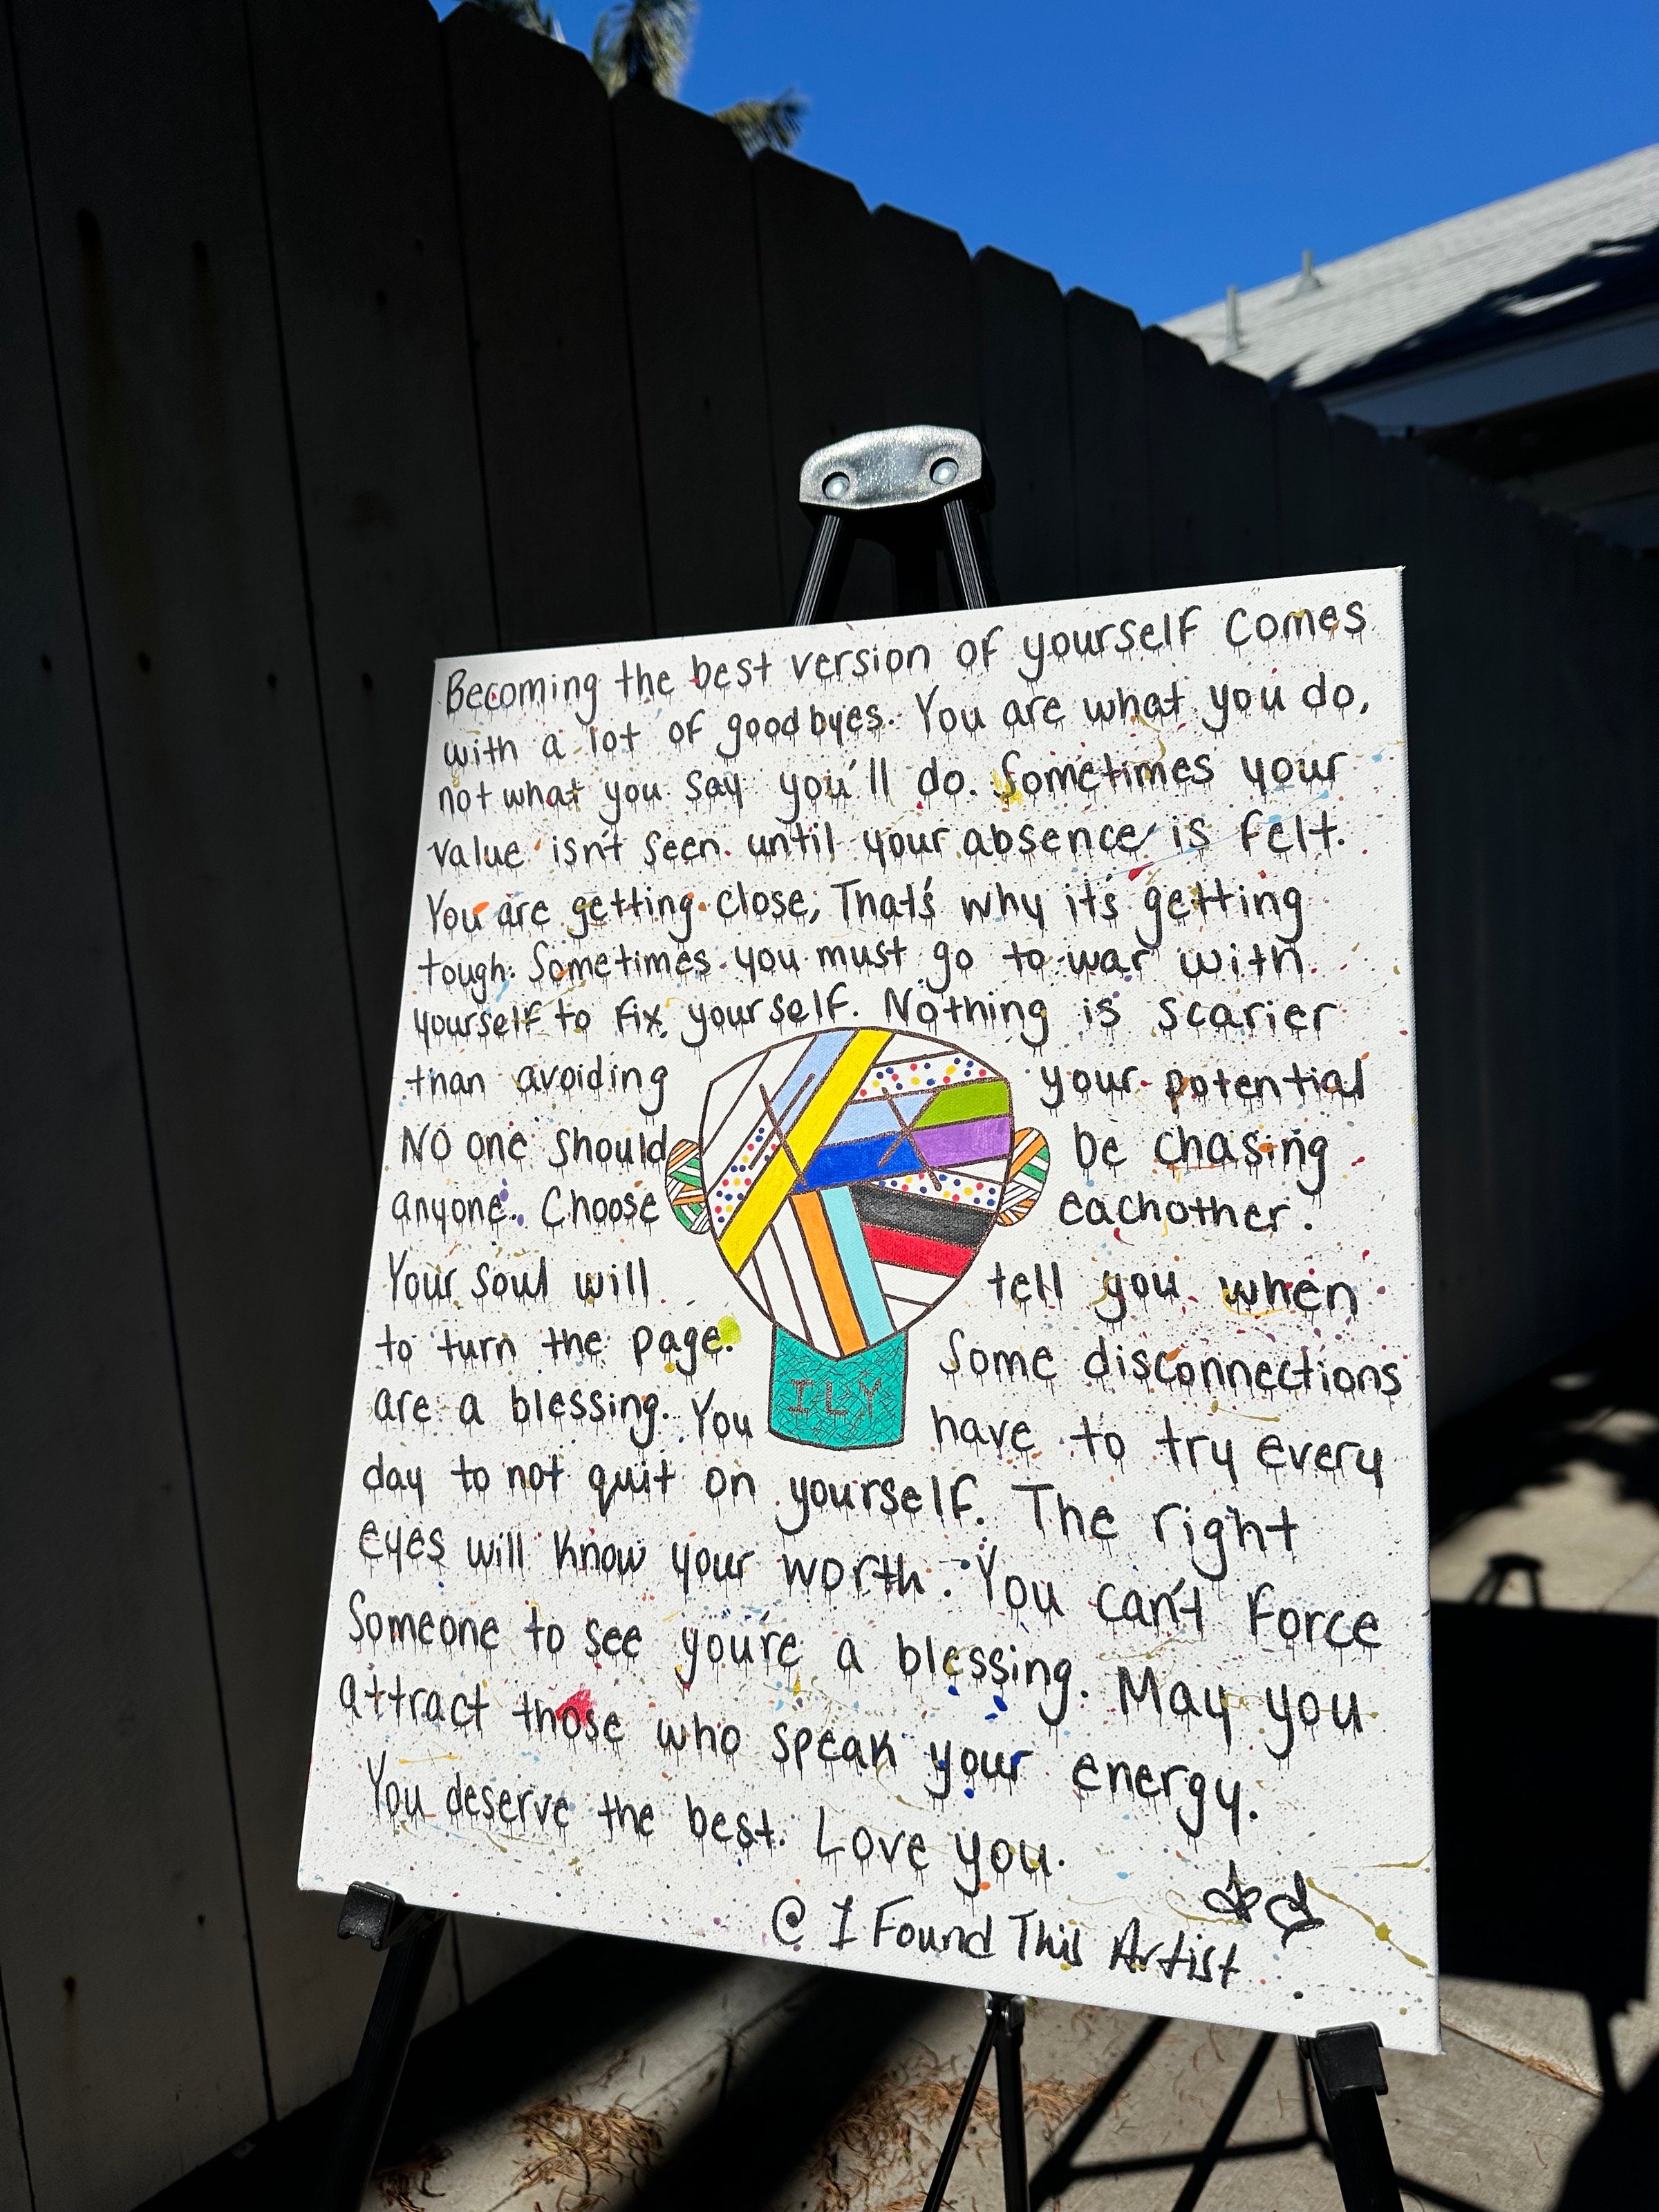 Becoming the best version of yourself Comes
with a lot of goodbyes. You are what you do,
not what you say you'll do. Sometimes your
value isn't seen until your absence is felt.
You are getting close, That's why it's getting
tough. Sometimes you must go to war with
yourself to fix yourself. Nothing is scarier
than avoiding your potential
No one should be chasing
anyone. Choose eachother.
Your soul will tell you when
to turn the page. Some disconnections
are a blessing. You have to try every
ILY
day to not quit on yourself. The right
eyes will know your worth. You can't force
Someone to see you're a blessing. May you
attract those who speak your energy.
You deserve the best. Love you.
@ I Found This Artist